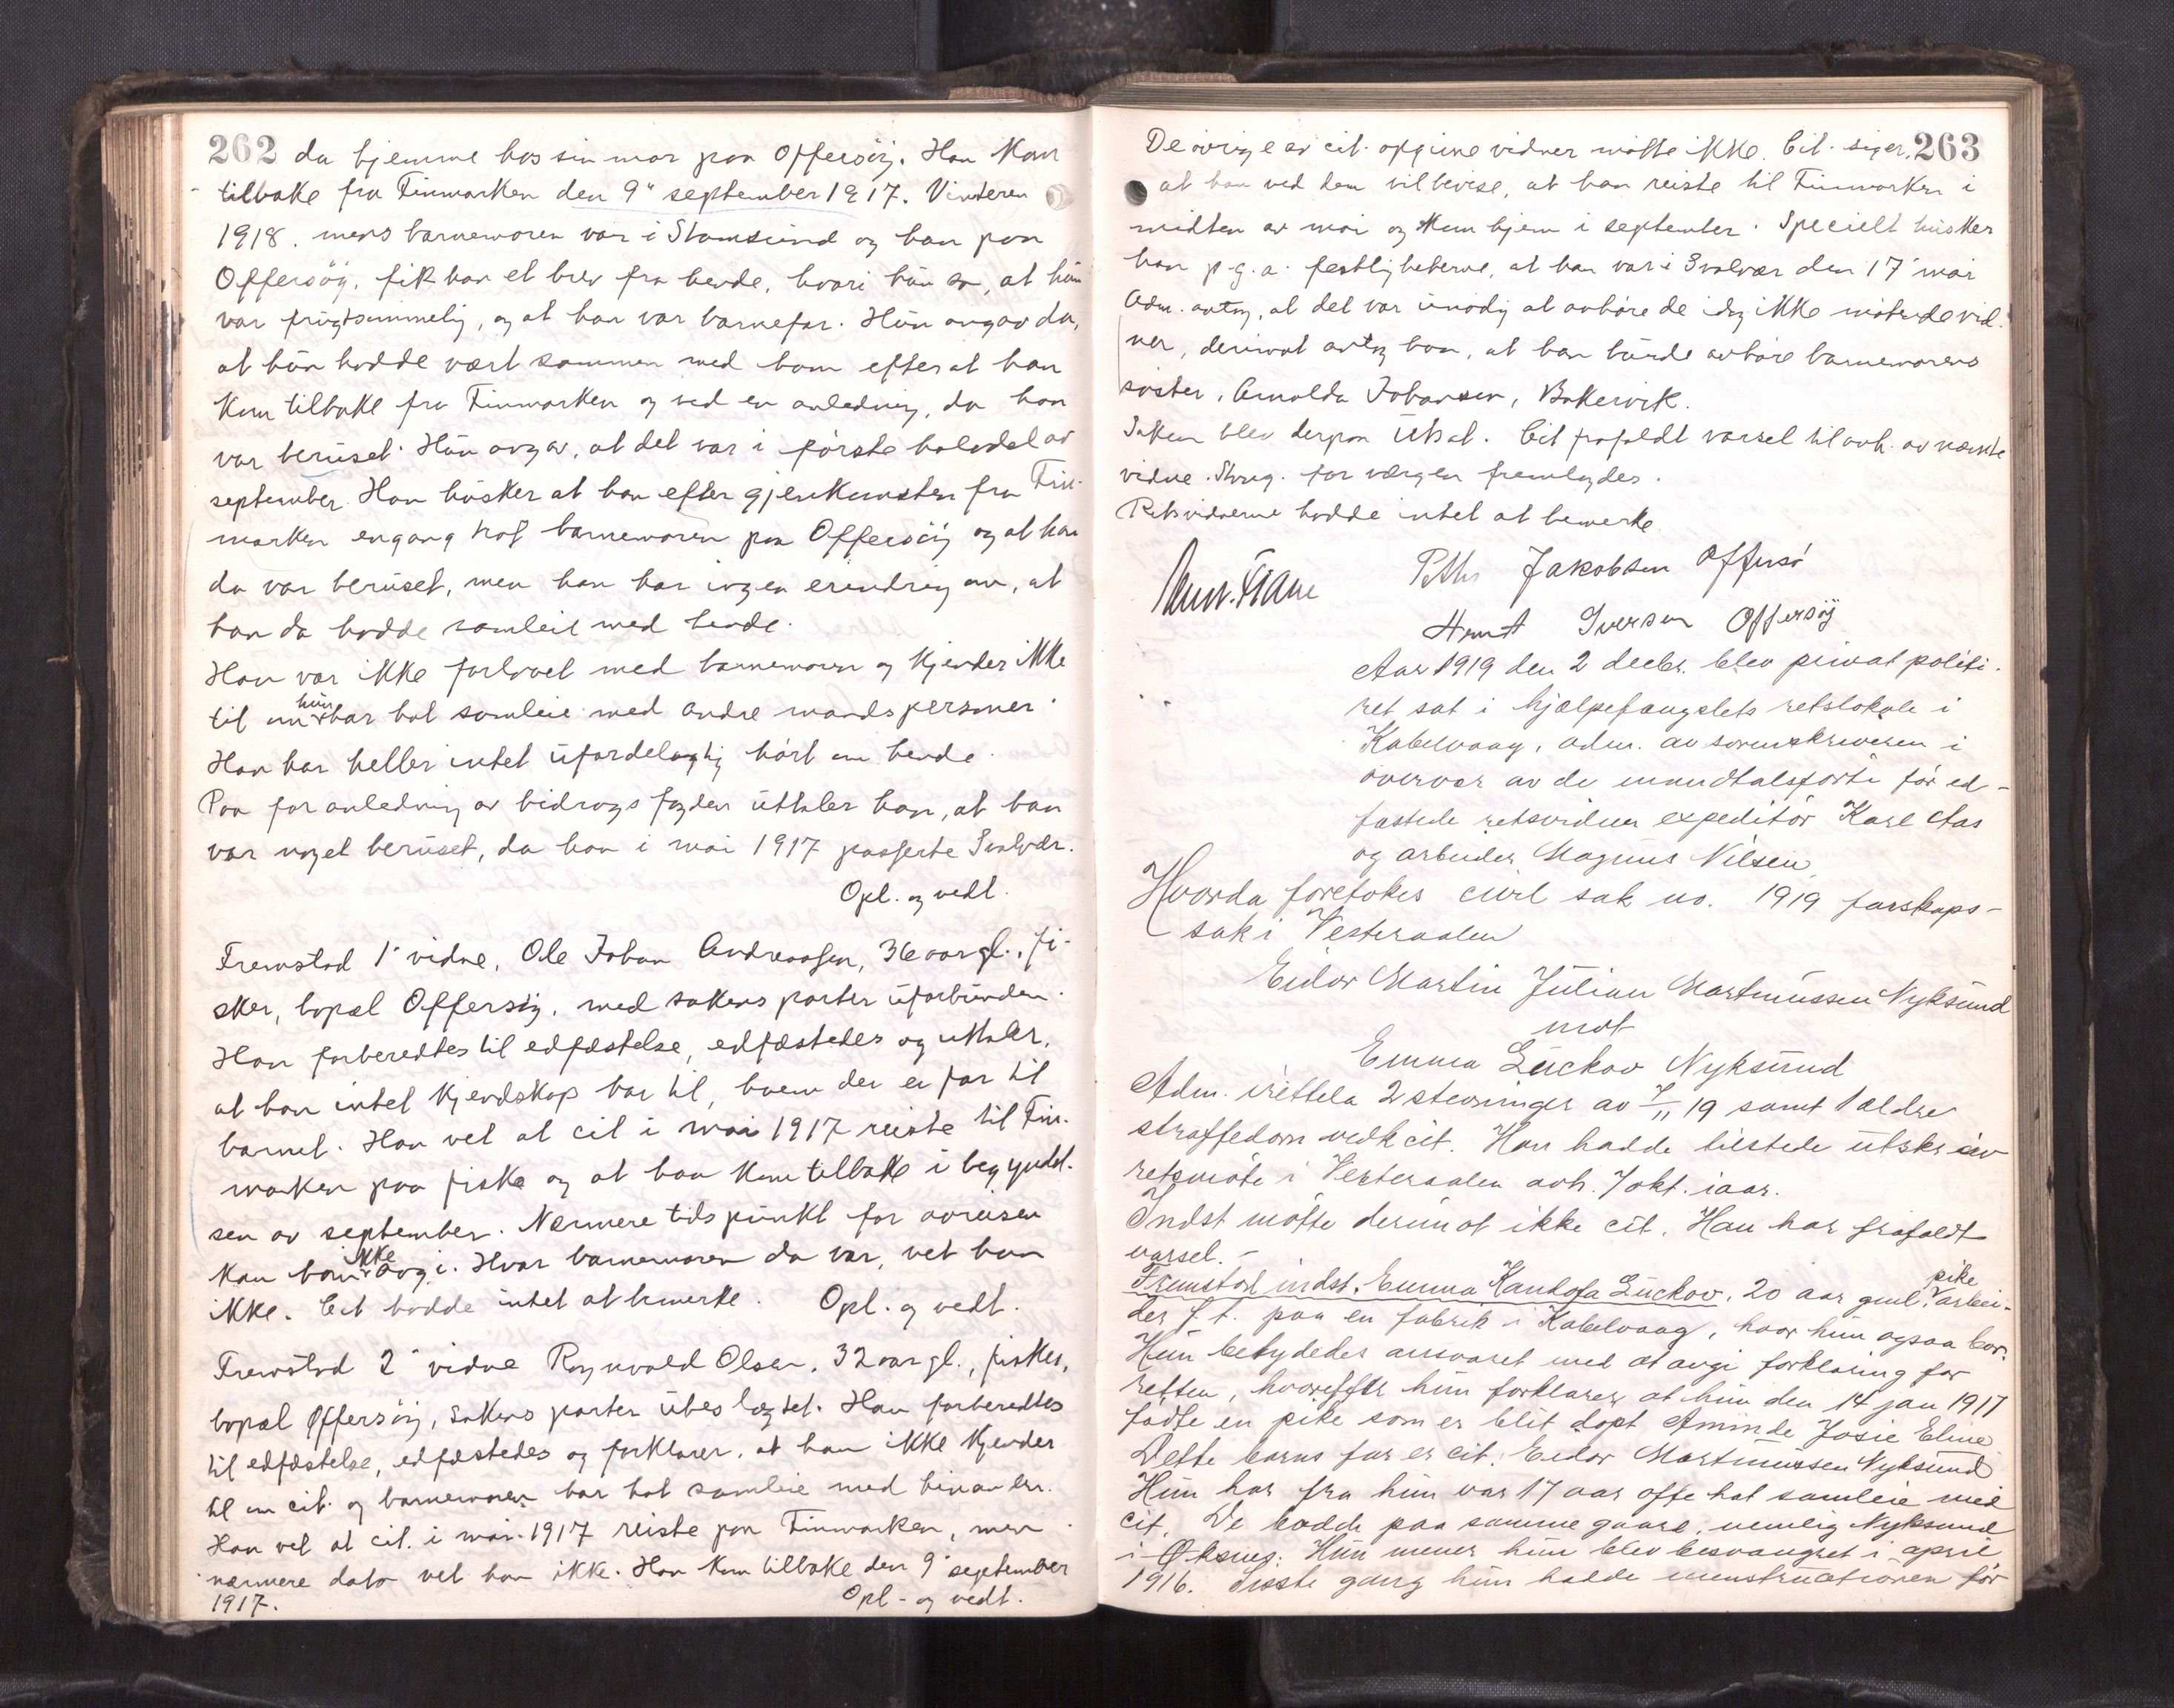 262 da hjemme hos sin mor paa Offersöy. Han kom
tilbake fra Finmarken den 9" september 1917. Vinteren
1918. mens barnemoren var i Stamsund og han paa
Offersöy, fik han et brev fra hende, hvori hun sa, at hun
var frugtsommelig, og at han var barnefar. Hun angav da,
at hun hadde vært sammen med ham efter at han
kom tilbake fra Finmarken og ved en anledning, da han
var beruset. Hun angav, at det var i første halvdel av
september. Han husker at han efter gjenkomsten fra Fin-
marken engang traf barnemoren paa Offersöy og at han
da var beruset, men han har ingen erindring om, at
han da hadde samleie med hende.
Han var ikke forlovet med barnemoren og kjender ikke
til om hun har hat samleie med andre mandspersoner.
Han har heller intet ufordelagtig hört om hende.
Paa foranledning av bidragsfogden uttaler han, at han
var noget beruset, da han i mai 1917 passerte Svolvær.
Opl. og vedt.
Fremstod 1' vidne, Ole Johan Andreassen, 36 aar gl., fi-
sker, bopæl Offersöy, med sakens parter uforbunden.
Han forberedtes til edfæstelse, edfæstedes og uttaler,
at han intet kjendskap har til, hvem der er far til
barnet. Han vet at cit i mai 1917 reiste til Fin-
marken paa fiske og at han kom tilbake i begyndel-
sen av september. Nærmere tidspunkt for avreisen
kan han ikke avgi. Hvor barnemoren da var, vet han
ikke. Cit hadde intet at bemerke. Opl. og vedt.
Fremstod 2' vidne Ragnvald Olsen, 32 aar gl., fisker,
bopæl Offersöy, sakens parter ubeslægtet. Han forberedtes
til edfæstelse, edfæstedes og forklarer, at han ikke kjender
til om cit. og barnemoren har hat samleie med hinanden.
Han vet at cit. i mai 1917 reiste paa Finmarken, men
nærmere dato vet han ikke. Han kom tilbake den 9' september
1917. Opl. og vedt.
263
De övrige av cit. opgivne vidner mötte ikke. Cit. siger,
at han ved dem vil bevise, at han reiste til Finmarken i
midten av mai og kom hjem i september. Specielt husker
han p.g.a. festlighetene, at han var i Svolvær den 17' mai
Adm. antog, at det var unödig at avhöre de idag ikke mötende vid-
ner, derimot antog han, at han burde avhöre barnemorens
söster, Arnolda Johansen, Bakervik.
Saken blev derpaa utsat. Cit frafaldt varsel til avh. av nævnte
vidne. Skrug. for værgen fremlagdes.
Retsvidnerne hadde intet at bemerke
Peths Jakobsen Offersö
Arnt Iversen Offersöy
Aar 1919 den 2 decbr. blev privat politi-
ret sat i hjælpefængslets retslokale i
Kabelvaag, adm. av sorenskriveren i
overvær av de mandtalsförte för ed-
fæstede retsvidner expeditör Karl Aas
og arbeider Magnus Nilsen
Hvorda foretokes civil sak no. 1919 farskaps-
sak i Vesteraalen
Eidor Martin Julian Martinussen Nyksund
mot
Emma Luckow Nyksund
Adm. irettela 2 stevninger av 7/11 19 samt 1 ældre
straffedom vedk cit. Han hadde tilstede utskr av
retsmöte i Vesteraalen avh. 7 okt. iaar.
Indst mötte derimot ikke cit. Han har frafaldt
varsel. -
Fremstod indst. Emma Luckow, 20 aar gml. pike arbei-
der f.t. paa en fabrik i Kabelvaag, hvor hun ogsaa bor.
Hun betydedes ansvaret med at avgi forklaring for
retten, hvorefter hun forklarer at hun den 14 jan 1917
födte en pike som er blit döpt Aminde Josie Eline
Dette barns far er cit. Eidor Martinussen Nyksund
Hun har fra hun var 17 aar ofte hat samleie med
cit. De bodde paa samme gaard, nemlig Nyksund
i Øksnes. Hun mener hun blev besvangret i april
1916. Sidste gang hun hadde menstruationen för